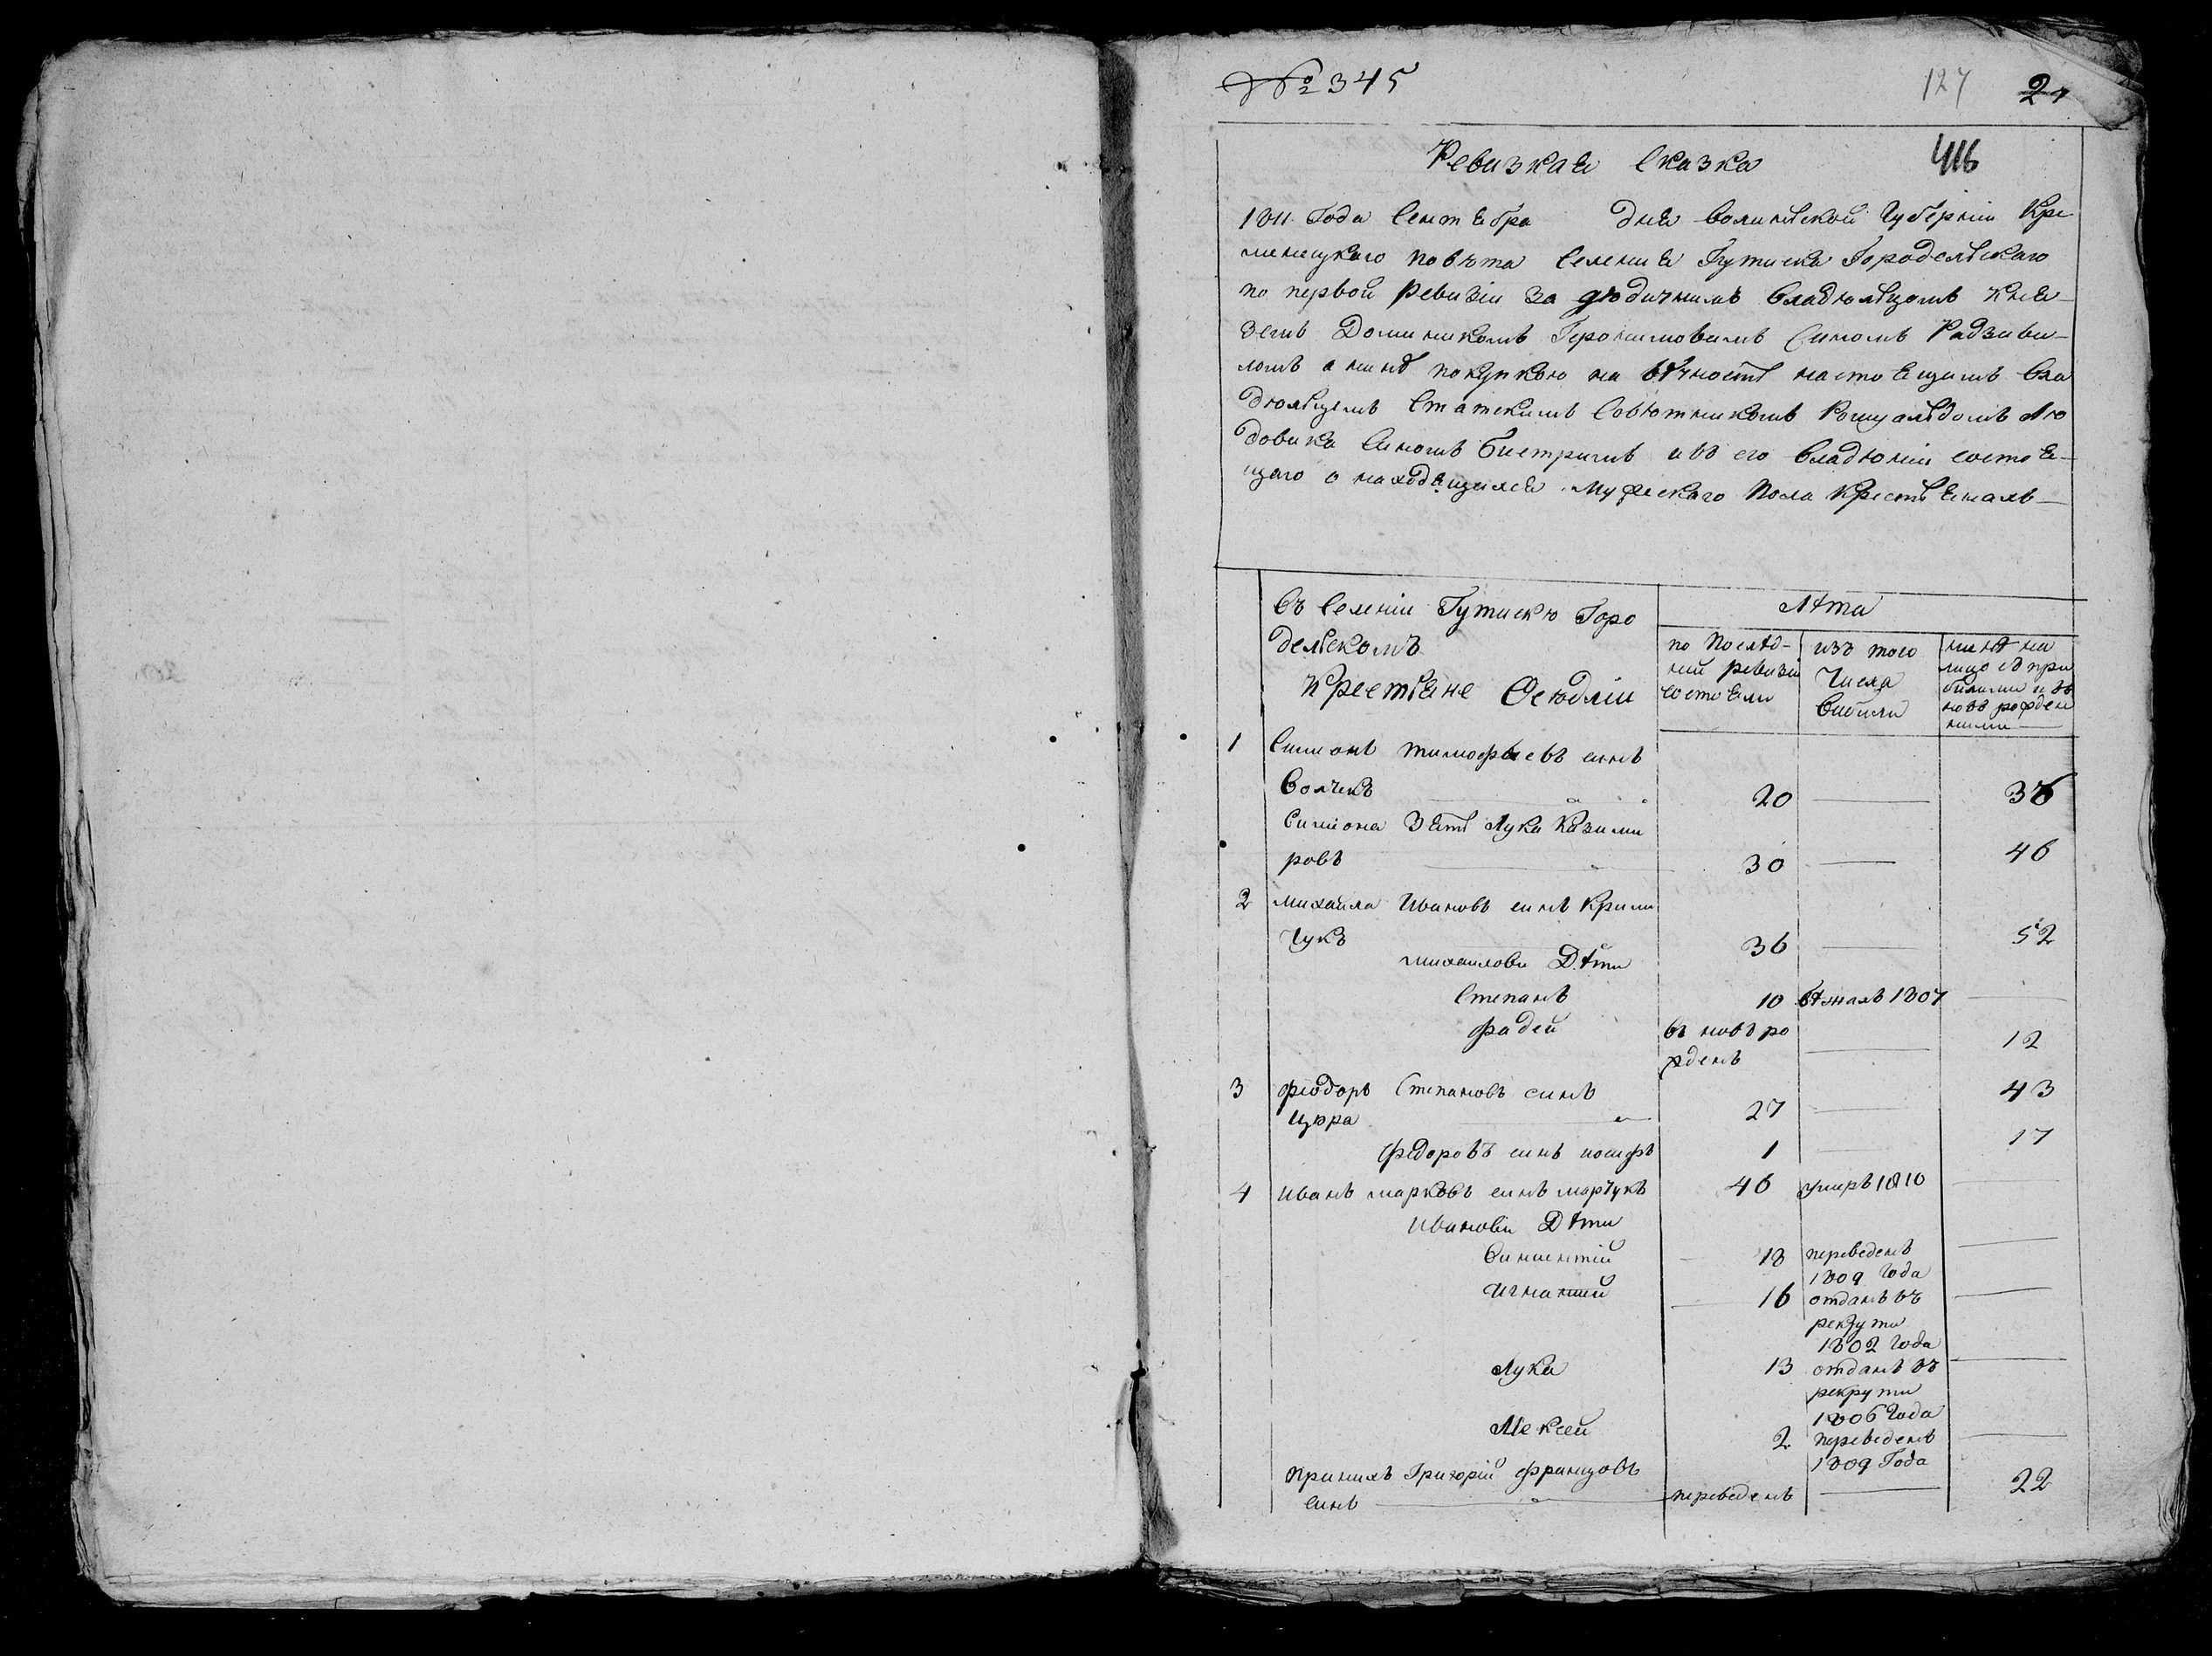 № 345
127 27
Ревизкая Сказка 416
1811 Года Сентября дня Волинской Губерніи Кре-
менецкаго повѣта Селения Гутиска Городельскаго
по первой Ревизіи за дюдичнимъ Владюльцомъ Кня-
земъ Доминикомъ Геронимовимъ Синомъ Радзиви-
ломъ а нинѣ покупкою на вѣчность настоящимъ Вла
дюльцемъ Статскимъ Совютникомъ Ромуальдомъ Лю
довика Синомъ Бистримъ и въ его Владюніи состоя-
щаго о находящихся Мужескаго Пола Крестьянахъ
Въ Селеніи Гутиску Горо
дельскомъ
Крестьяне Осѣдліи
Лѣта
по Послѣд-
ней ревизіи
состояли
изъ того
Числа
Вибили
нинѣ на
лицо съ при
билими и въ
новъ рожден
ними
1 Симионъ Тимофѣевъ синъ
Волчекъ 20 36
Симиона Зять Лука Казими
ровъ 30 46
2 Михайла Ивановъ синъ Крими
чукъ 36 52
Михаилови Дѣти
Степанъ 10 бѣжалъ 1807
Фадей въ новъ ро
жденъ 12
3 Фюдоръ Степановъ синъ
Цюра 27 43
Федоровъ синъ иосифъ 1 17
4 Иванъ Марковъ синъ Марчукъ 46 умеръ 1810
Иванови Дѣти
Викентій 18 переведенъ
1809 Года
Игнатий 16 отданъ въ
рекрути
1802 Года
Лука 13 отданъ въ
рекрути
1806 Года
Алексей 2 переведенъ
1809 Года
Примихъ Григорій Францовъ
синъ переведенъ 22